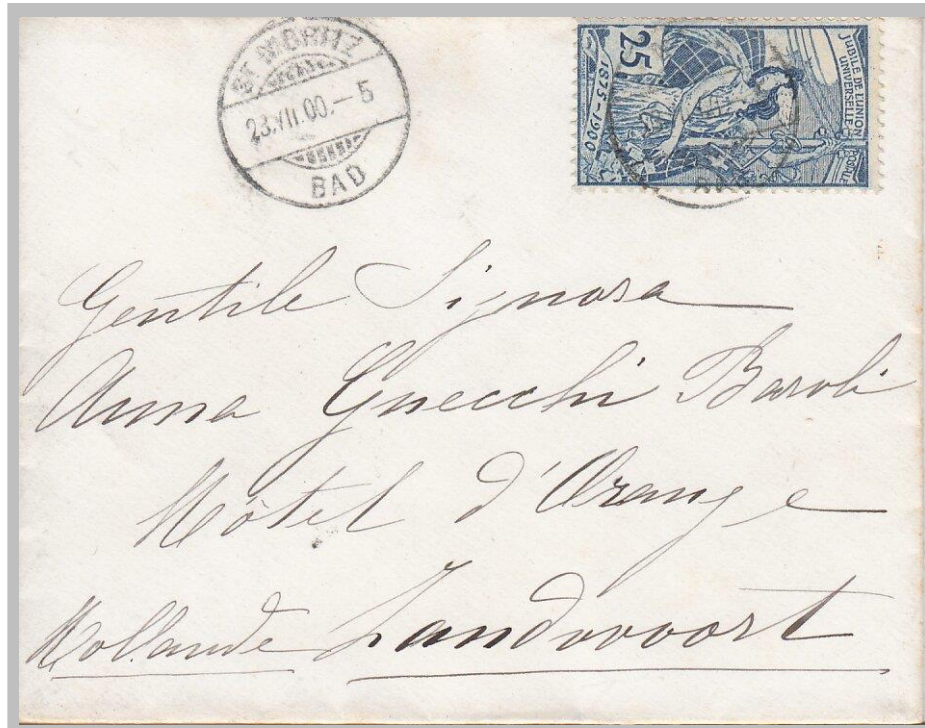 ST. MORITZ
23.VII.00.–5
BAD
JUBILÉ DE L'UNION
UNIVERSELLE
25
1875–1900
Gentile Signora
Anna Gnecchi Baroli
Hôtel d'Orange
Hollande Zandvoort